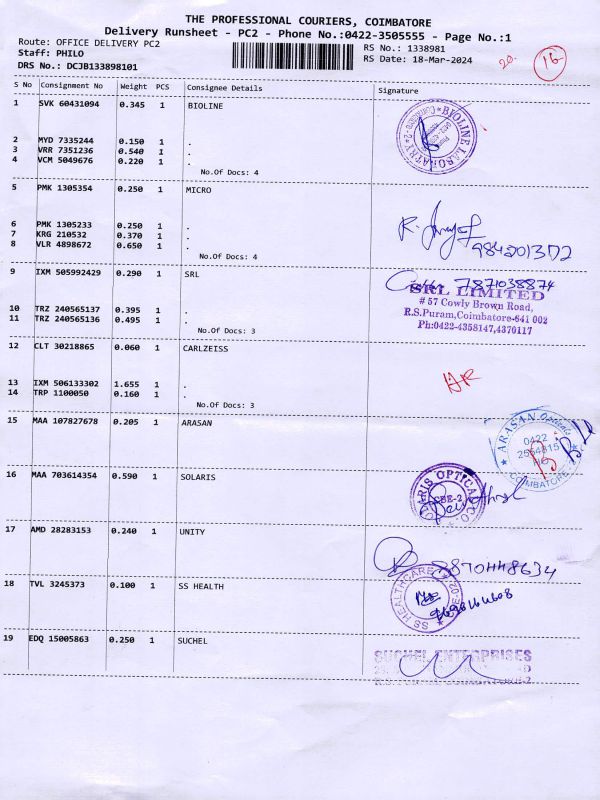 THE PROFESSIONAL COURIERS, COIMBATORE
Delivery Runsheet - PC2 - Phone No.:0422-3505555 - Page No.:1
Route: OFFICE DELIVERY PC2
RS No.: 1338981
Staff: PHILO
RS Date: 18-Mar-2024
DRS No.: DCJB133898101
20.
16
S No Consignment No Weight PCS Consignee Details Signature
1 SVK 60431094 0.345 1 BIOLINE
BIOLINE LABORATORY
2 MYD 7335244 0.150 1 .
3 VRR 7351236 0.540 1 .
4 VCM 5049676 0.220 1 .
No.Of Docs: 4
5 PMK 1305354 0.250 1 MICRO
6 PMK 1305233 0.250 1 .
7 KRG 210532 0.370 1 .
8 VLR 4898672 0.650 1 .
No.Of Docs: 4
9 IXM 505992429 0.290 1 SRL
7871038874
SRL LIMITED
# 57 Cowly Brown Road,
R.S.Puram,Coimbatore-641 002
Ph:0422-4358147,4370117
10 TRZ 240565137 0.395 1 .
11 TRZ 240565136 0.495 1 .
No.Of Docs: 3
12 CLT 30218865 0.060 1 CARLZEISS
13 IXM 506133302 1.655 1 .
14 TRP 1100050 0.160 1 .
No.Of Docs: 3
15 MAA 107827678 0.205 1 ARASAN
ARASAN Opticals
0422
COIMBATORE
16 MAA 703614354 0.590 1 SOLARIS
SOLARIS OPTICAL CO.
CBE-2
17 AMD 28283153 0.240 1 UNITY
8870448634
18 TVL 3245373 0.100 1 SS HEALTH
SS HEALTHCARE
19 EDQ 15005863 0.250 1 SUCHEL
SUCHEL ENTERPRISES